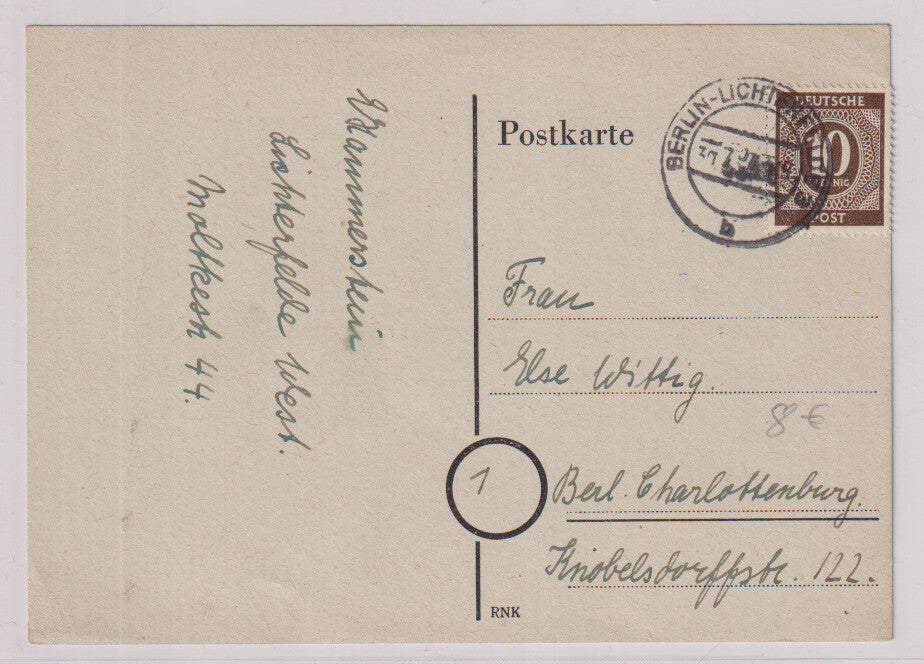 Hammerstein
Lichterfelde West.
Moltkestr 44.
Postkarte
BERLIN-LICHTERFELDE
b
DEUTSCHE
10
PFENNIG
POST
Frau
Else Wittig.
8 €
1
Berl. Charlottenburg.
Knobelsdorffstr. 122.
RNK